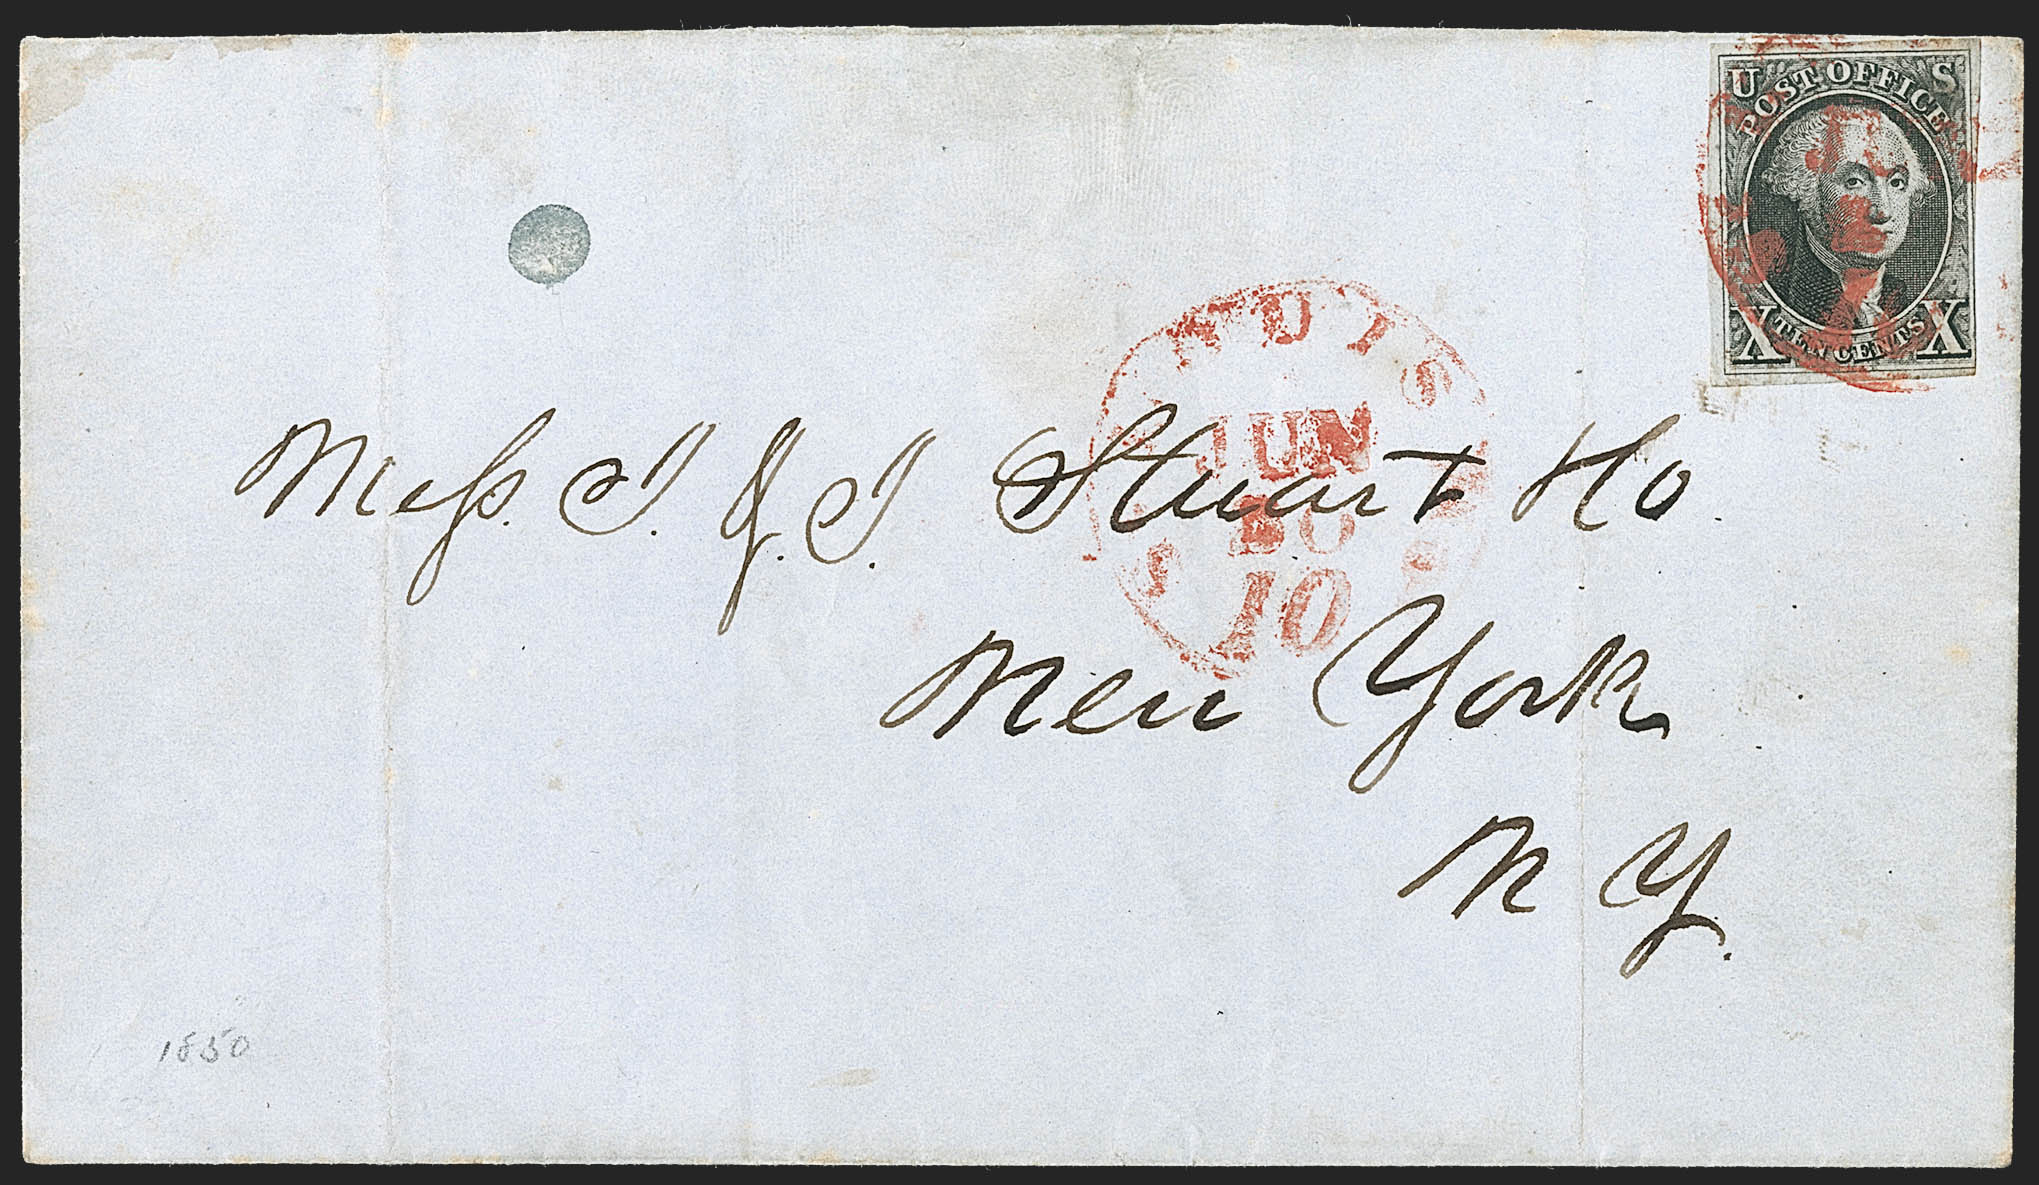 U S
POST OFFICE
X TEN CENTS X
LOUIS
JUN
10
Mess. J. & J. Stuart & Co.
New York
N Y.
1850